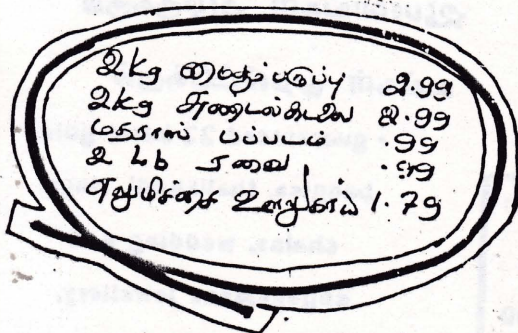 2kg மைதம்பருப்பு 2.99
2kg சுண்டல்கடலை 2.99
மதராஸ் பப்படம் .99
2 Lb ரவை .99
எலுமிச்சை ஊறுகாய் 1.79